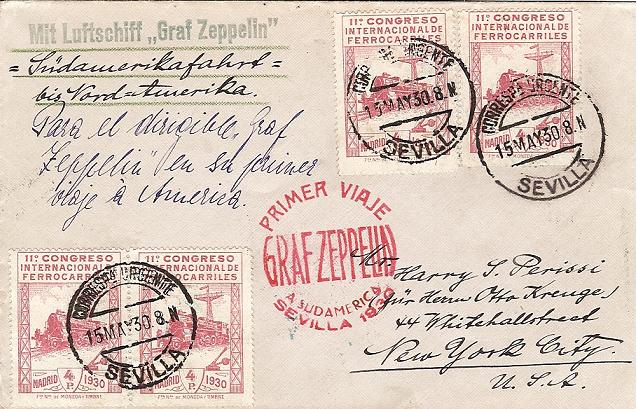 Mit Luftschiff „Graf Zeppelin"
= Südamerikafahrt =
bis Nord=Amerika.
Para el dirigible „Graf
Zeppelin" en su primer
viaje á America.
11º CONGRESO
INTERNACIONAL DE
FERROCARRILES
MADRID 4 P. 1930
CORRESPª URGENTE
15 MAY 30. 8 N
SEVILLA
11º CONGRESO
INTERNACIONAL DE
FERROCARRILES
MADRID 4 P. 1930
CORRESPª URGENTE
15 MAY 30. 8 N
SEVILLA
PRIMER VIAJE
GRAF ZEPPELIN
A SUDAMERICA
SEVILLA 1930
Mr. Harry S. Perissi
(für Herrn Otto Kreuge)
44 Whitehallstreet
New York City.
U.S.A.
11º CONGRESO
INTERNACIONAL DE
FERROCARRILES
MADRID 4 P. 1930
Fª Nª DE MONEDA Y TIMBRE
11º CONGRESO
INTERNACIONAL DE
FERROCARRILES
MADRID 4 P. 1930
Fª Nª DE MONEDA Y TIMBRE
CORRESPª URGENTE
15 MAY 30. 8 N
SEVILLA